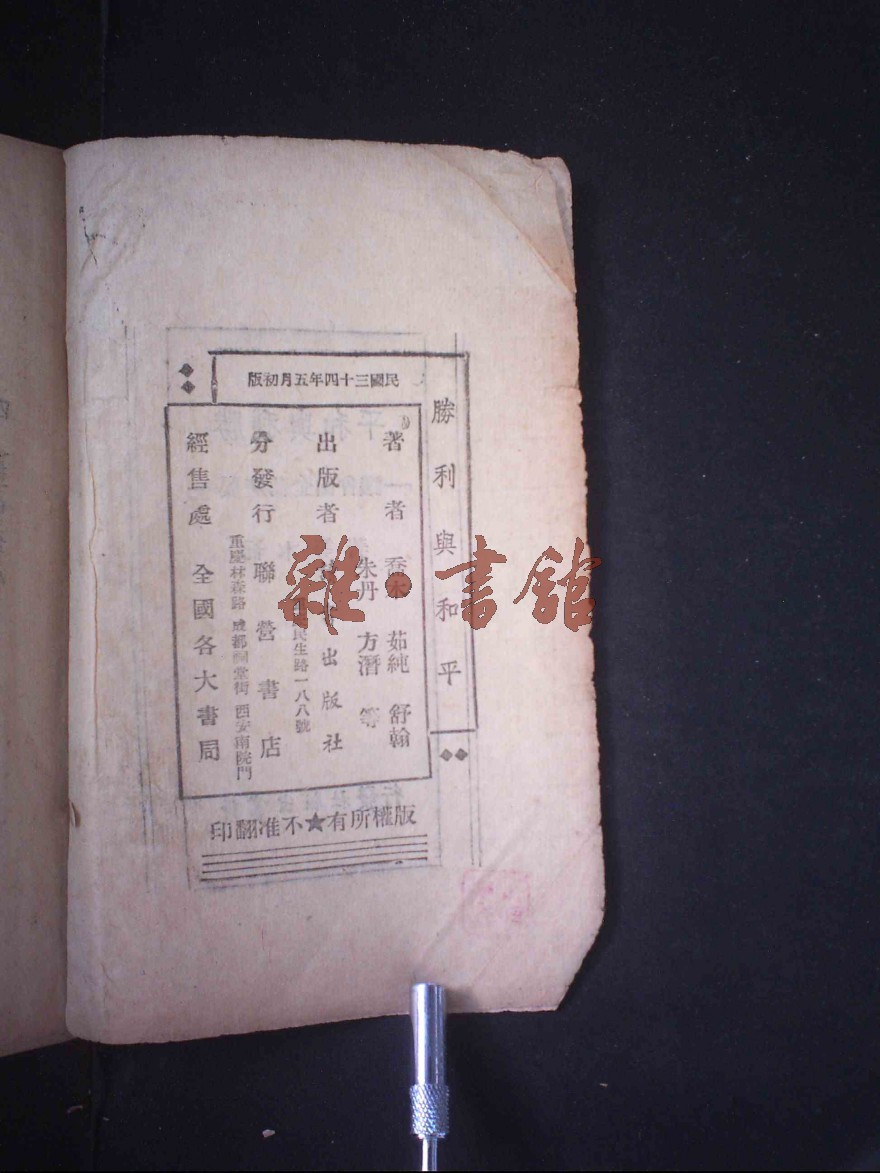 民國三十四年五月初版
勝利與和平
著者 喬木 茹純 舒翰
朱丹 方潛 等
出版者 出版社
民生路一八八號
分發行 聯營書店
重慶林森路 成都祠堂街 西安南院門
經售處 全國各大書局
版權所有★不准翻印
雜·書館